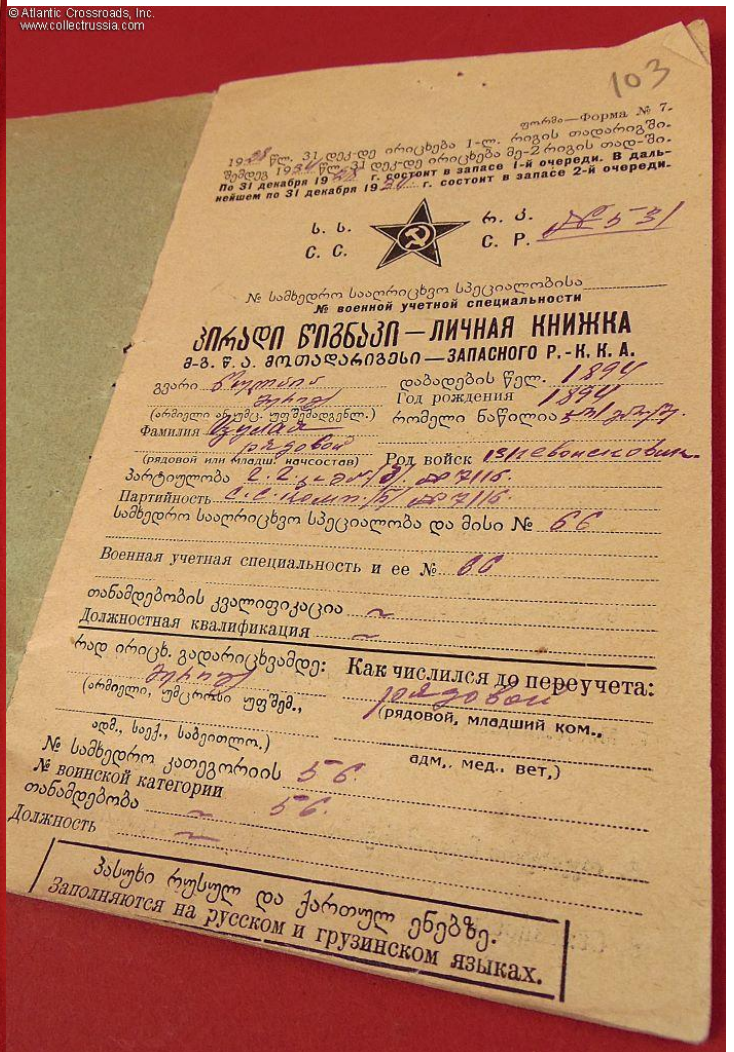 © Atlantic Crossroads, Inc.
www.collectrussia.com
103
ფორმა—Форма № 7.
1928 წლ. 31 დეკ-დე ირიცხება 1-ლ. რიგის თადარიგში.
შემდეგ 19 წლ. 31 დეკ-დე ირიცხება მე-2 რიგის თად-ში.
По 31 декабря 1928 г. состоит в запасе 1-й очереди. В даль-
нейшем по 31 декабря 19 г. состоит в запасе 2-й очереди.
ს. ს. რ. კ.
С. С. С. Р. № 531
№ სამხედრო სააღრიცხვო სპეციალობისა
№ военной учетной специальности
პირადი წიგნაკი — ЛИЧНАЯ КНИЖКА
მ-გ. წ. ა. მოთადარიგესი — ЗАПАСНОГО Р.-К.К.А.
გვარი დაბადების წელ. 1894
Год рождения 1894
(არმიელი ან უმც. უფშემადგენლ.) რომელი ნაწილია
Фамилия
рядовой
(рядовой или младш. начсостав) Род войск
პარტიულობა
Партийность С.С. № 7116.
სამხედრო სააღრიცხვო სპეციალობა და მისი № 66
Военная учетная специальность и ее № 66
თანამდებობის კვალიფიკაცია ~
Должностная квалификация ~
რად ირიცხ. გადარიცხვამდე: Как числился до переучета:
рядовой
(არმიელი, უმცროსი უფშემ., (рядовой, младший ком.,
ადმ., საექ., საბეითლო.) адм,. мед.. вет,)
№ სამხედრო კათეგორიის 56.
№ воинской категории 56.
თანამდებობა ~
Должность ~
პასუხი რუსულ და ქართულ ენებზე.
Заполняются на русском и грузинском языках.